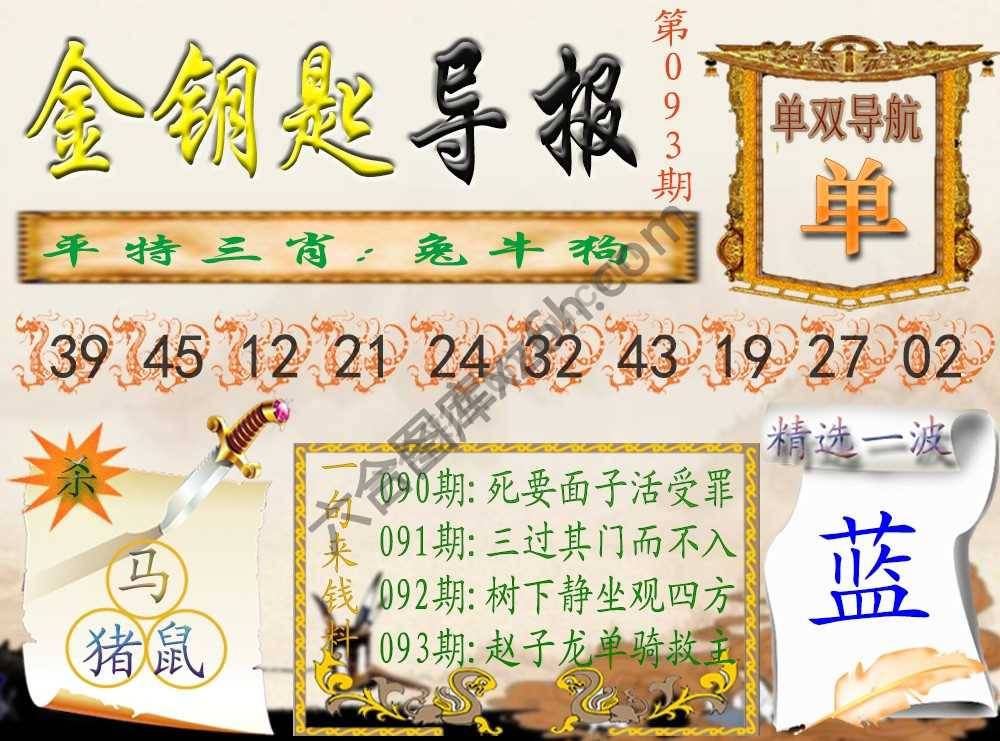 金钥匙导报
第093期
单双导航
单
平特三肖:兔牛狗
39 45 12 21 24 32 43 19 27 02
杀
马
猪鼠
一句来钱料
090期:死要面子活受罪
091期:三过其门而不入
092期:树下静坐观四方
093期:赵子龙单骑救主
精选一波
蓝